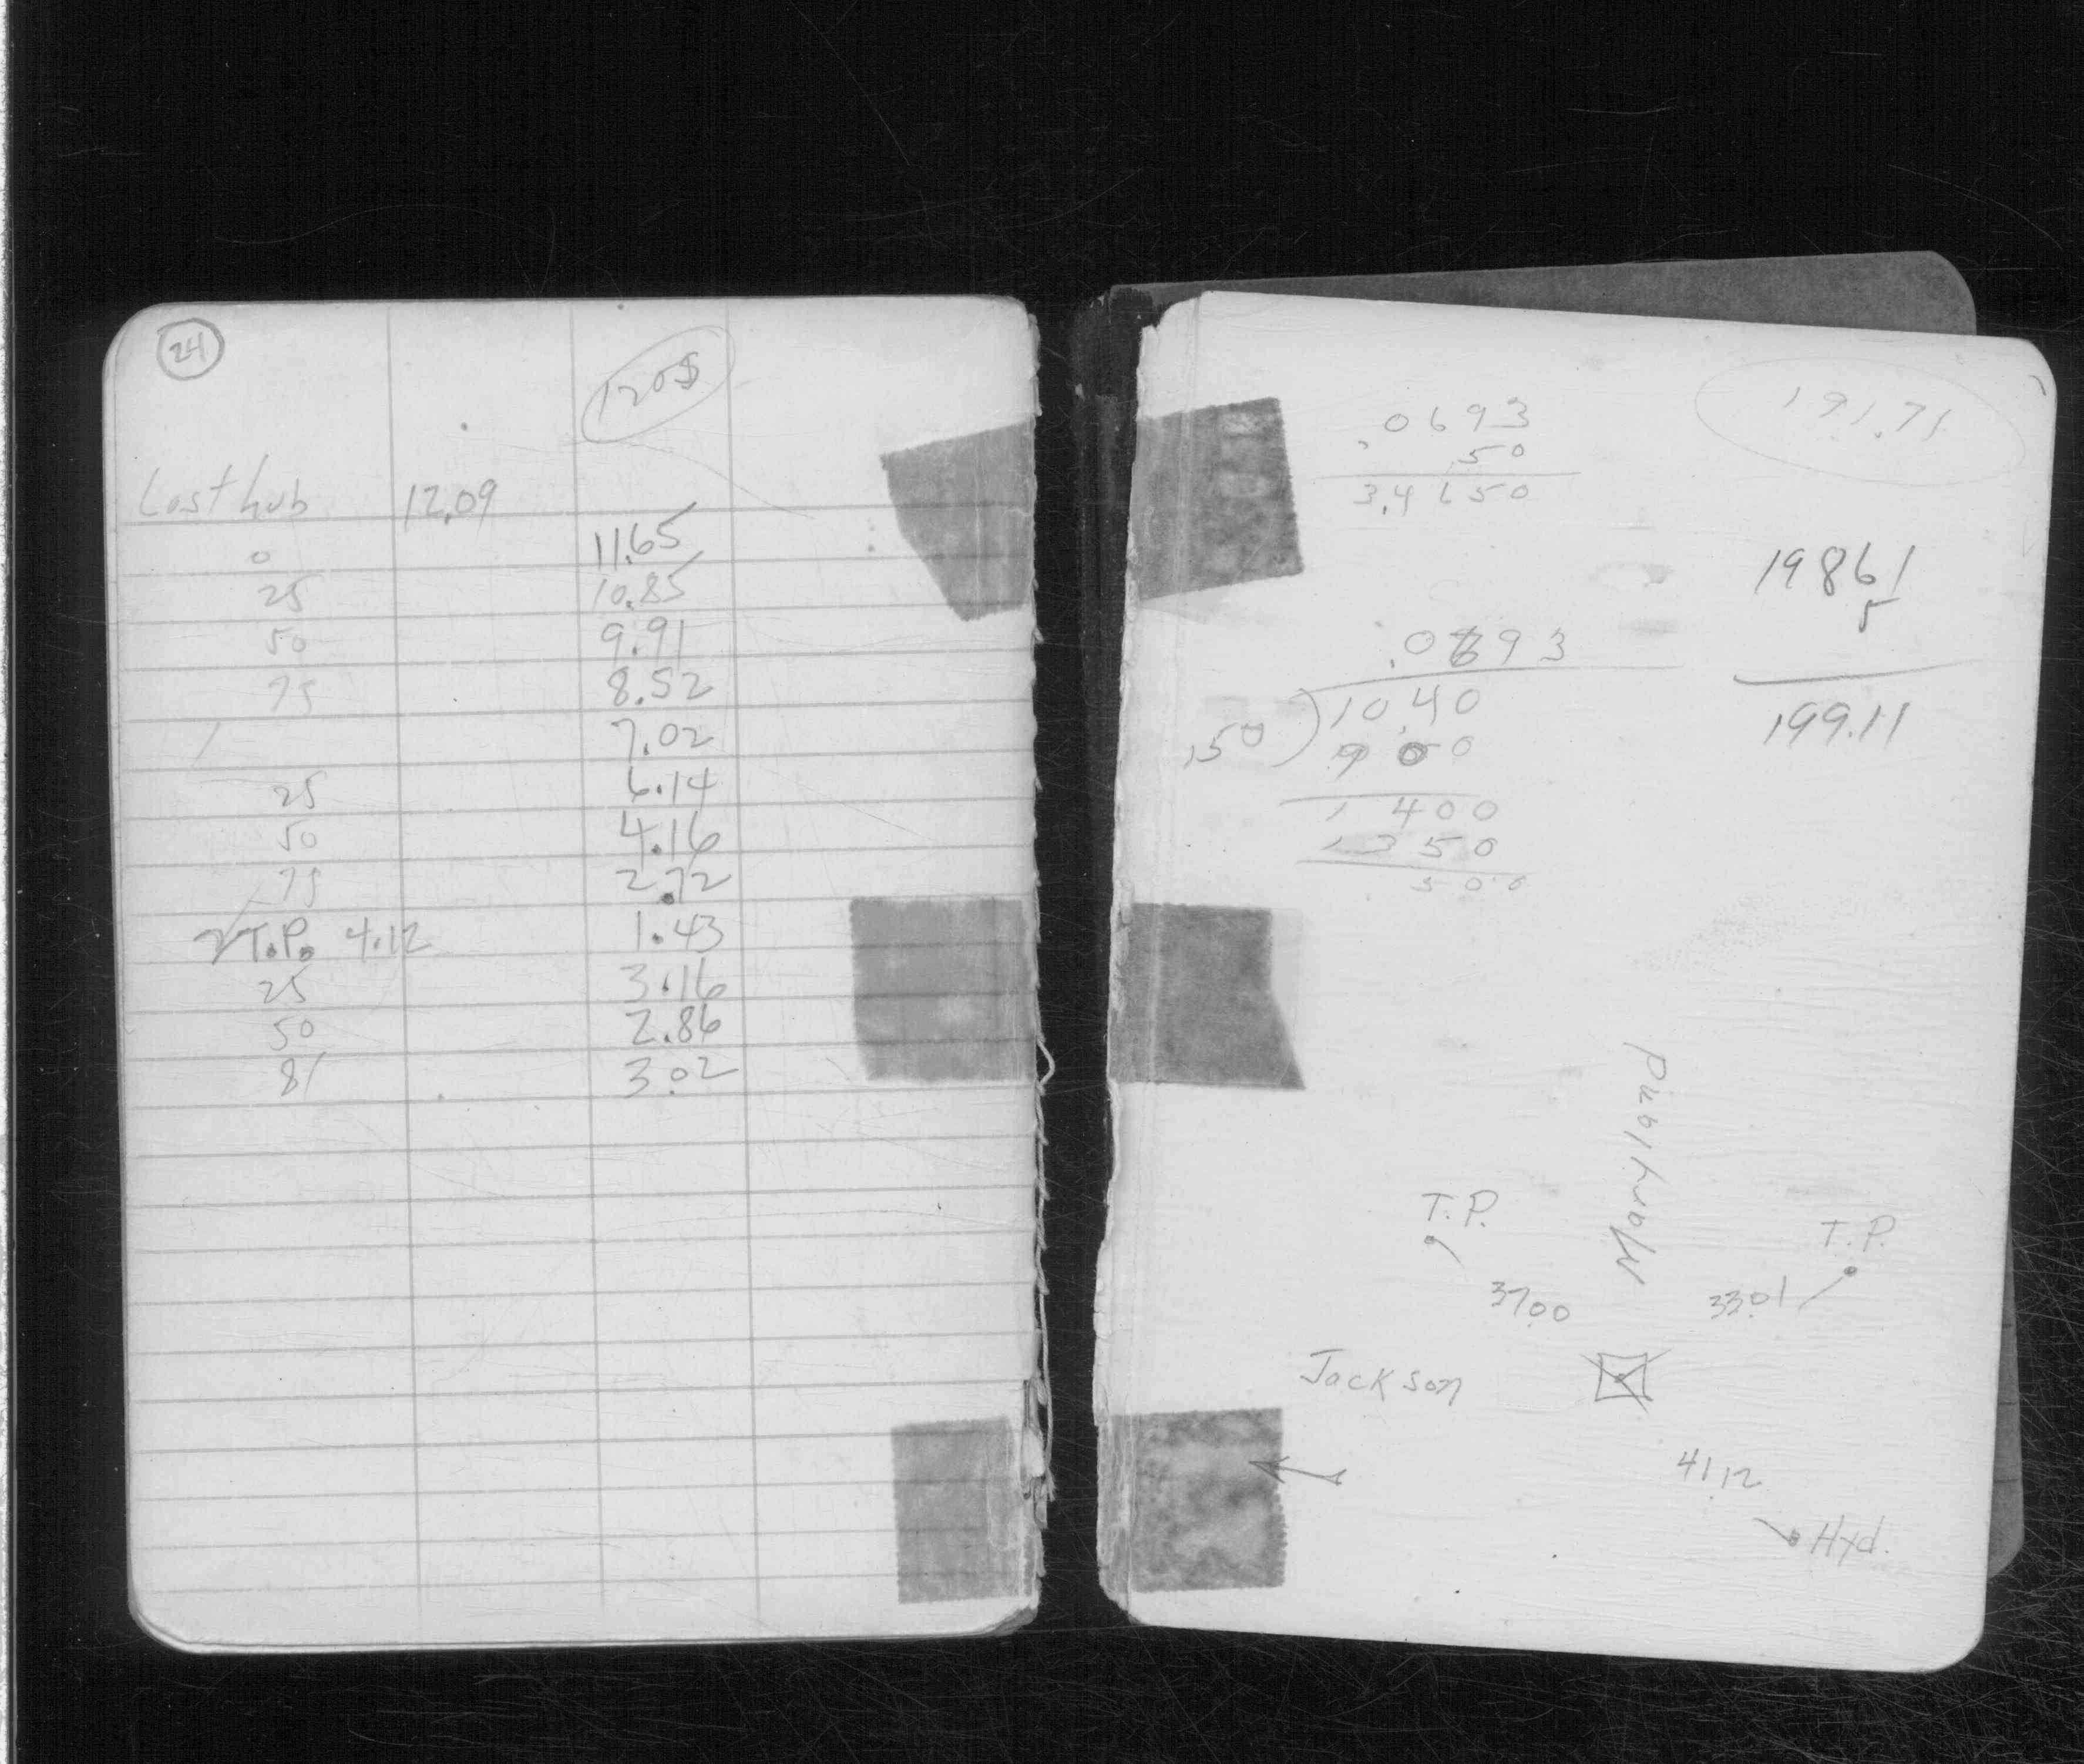 24
Last hub 12.09
0 11.65
25 10.85
50 9.91
75 8.52
1 7.02
25 6.14
50 4.16
75 2.72
2 T.P. 4.12 1.43
25 3.16
50 2.86
81 3.02
191.71
.0693
50
3.4650
19861
5
199.11
.0693
150 ) 10.40
900
1 400
1350
500
Maryland
T.P.
T.P.
37.00
33.01
Jackson
41.12
Hyd.